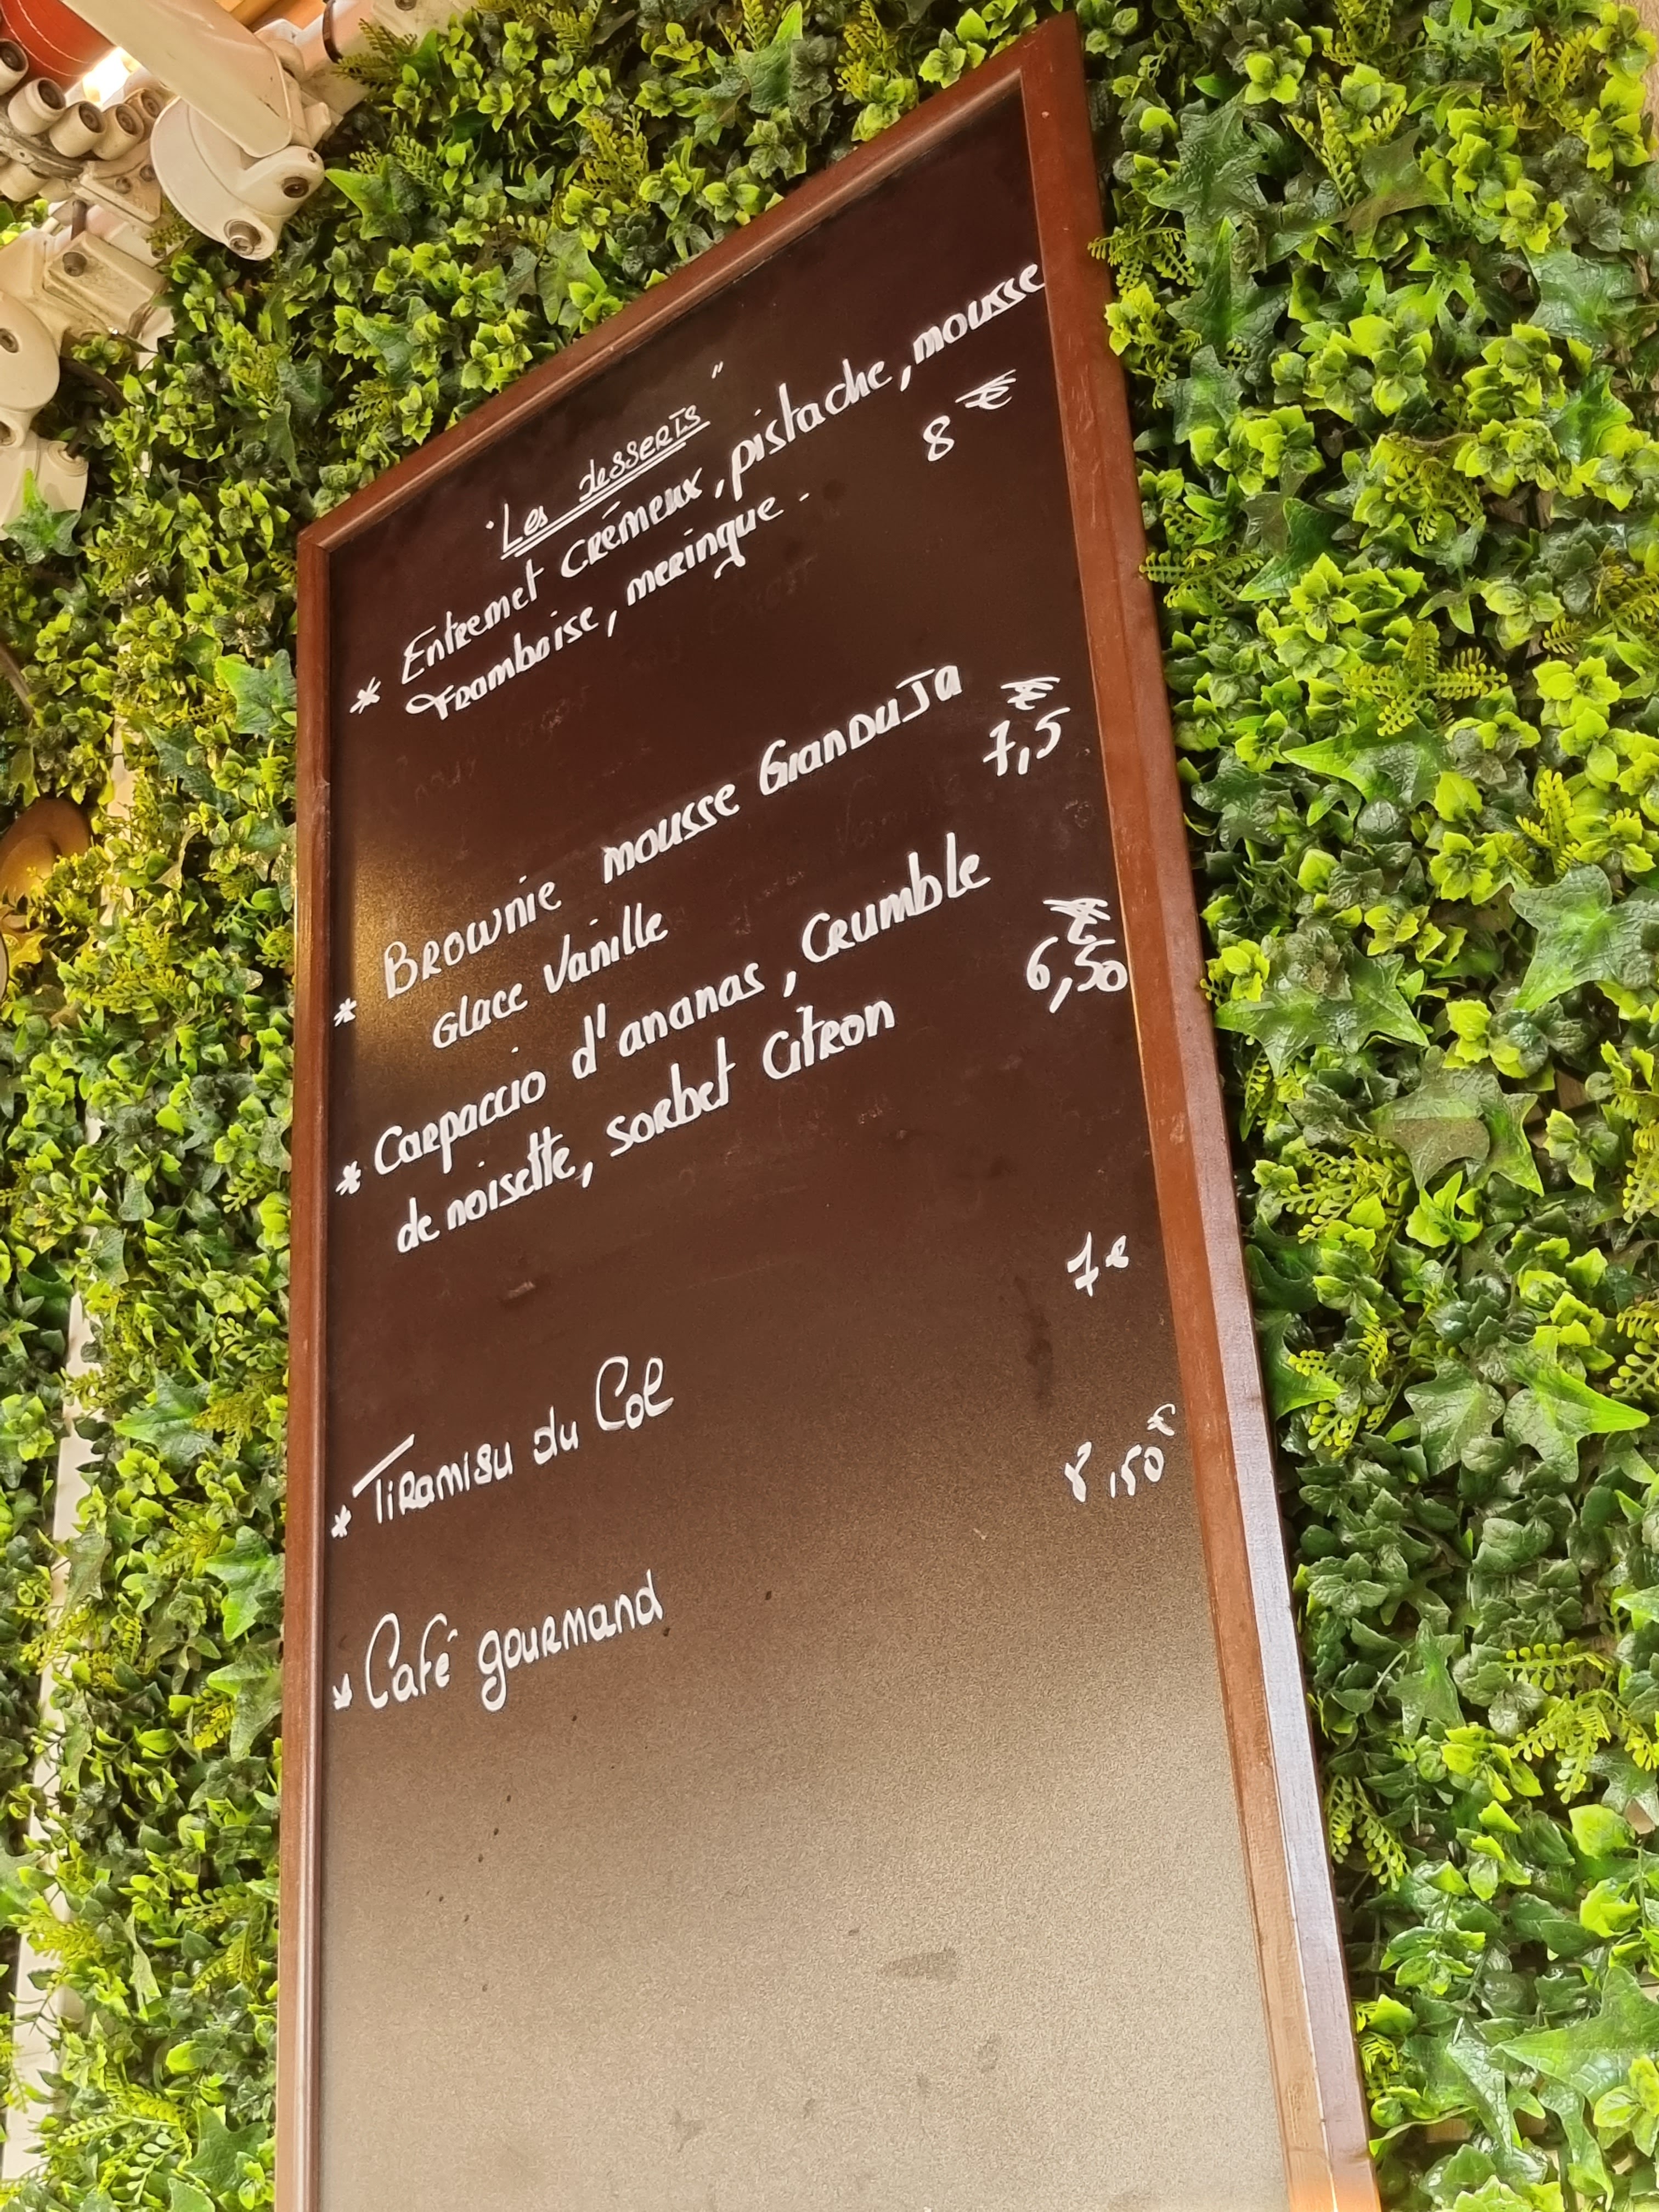 "Les desserts"
* Entremet crémeux, pistache, mousse
framboise, meringue. 8 €
* Brownie mousse Gianduja
Glace Vanille 7,5 €
* Carpaccio d'ananas, crumble
de noisette, sorbet citron 6,50 €
* Tiramisu du Col 7 €
* Café gourmand 8,50 €